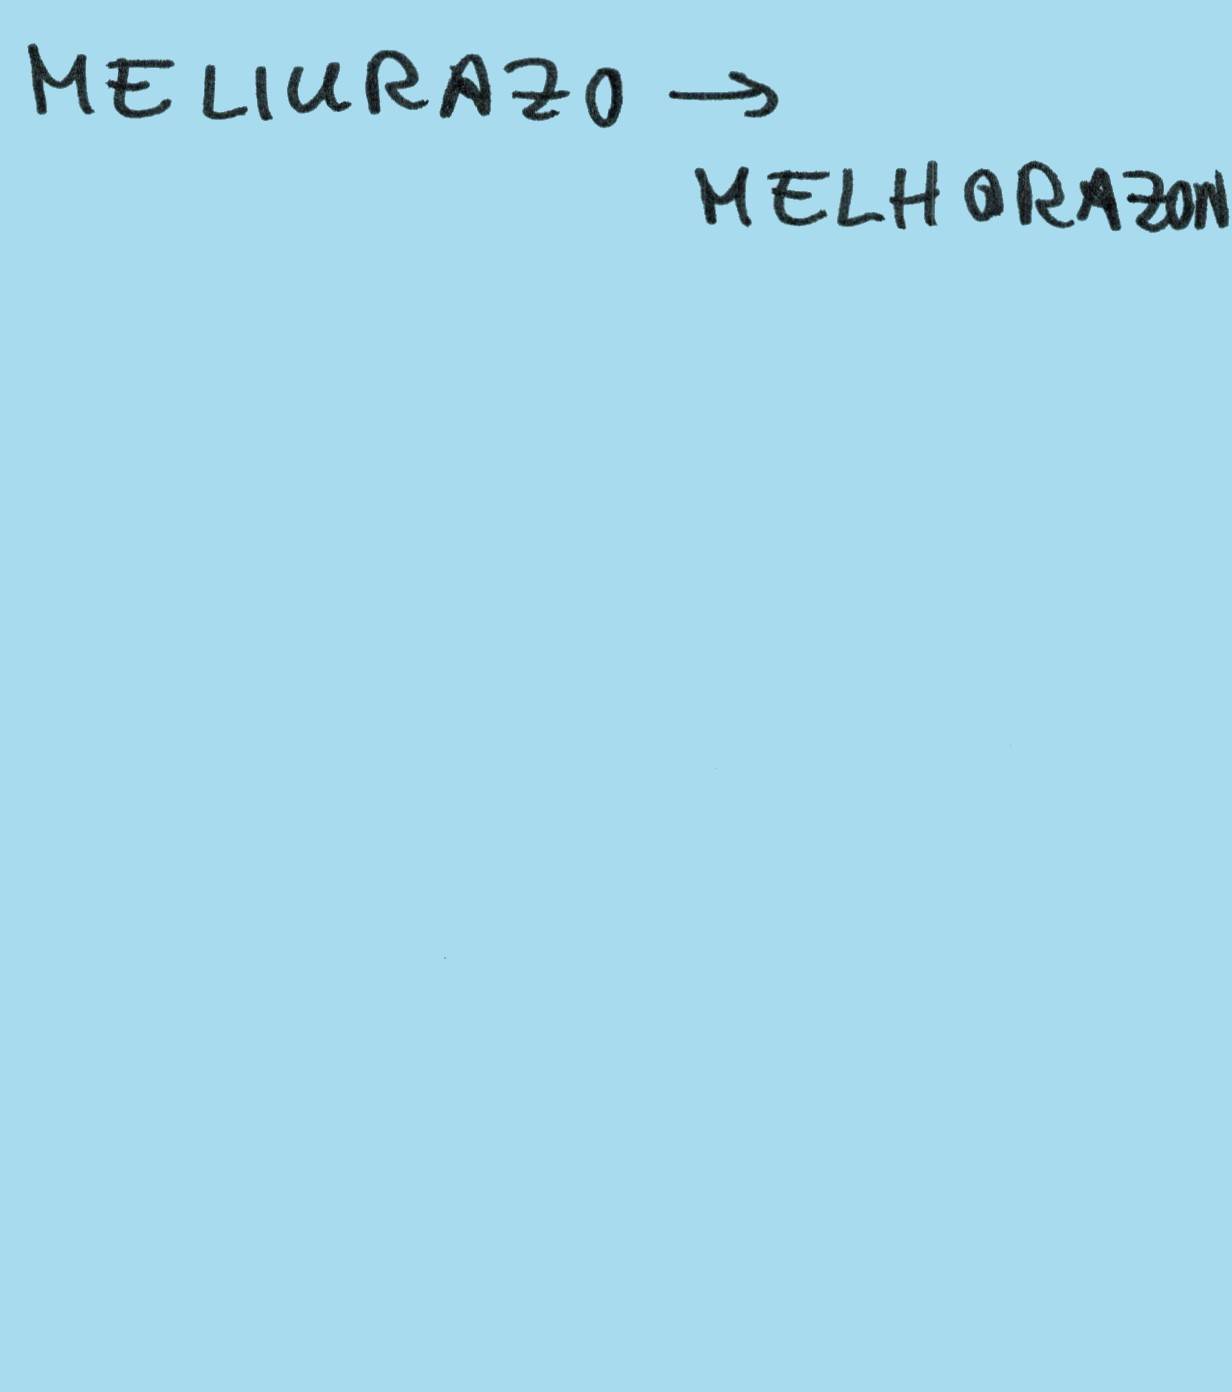 MELIURAZO →
MELHORAZON